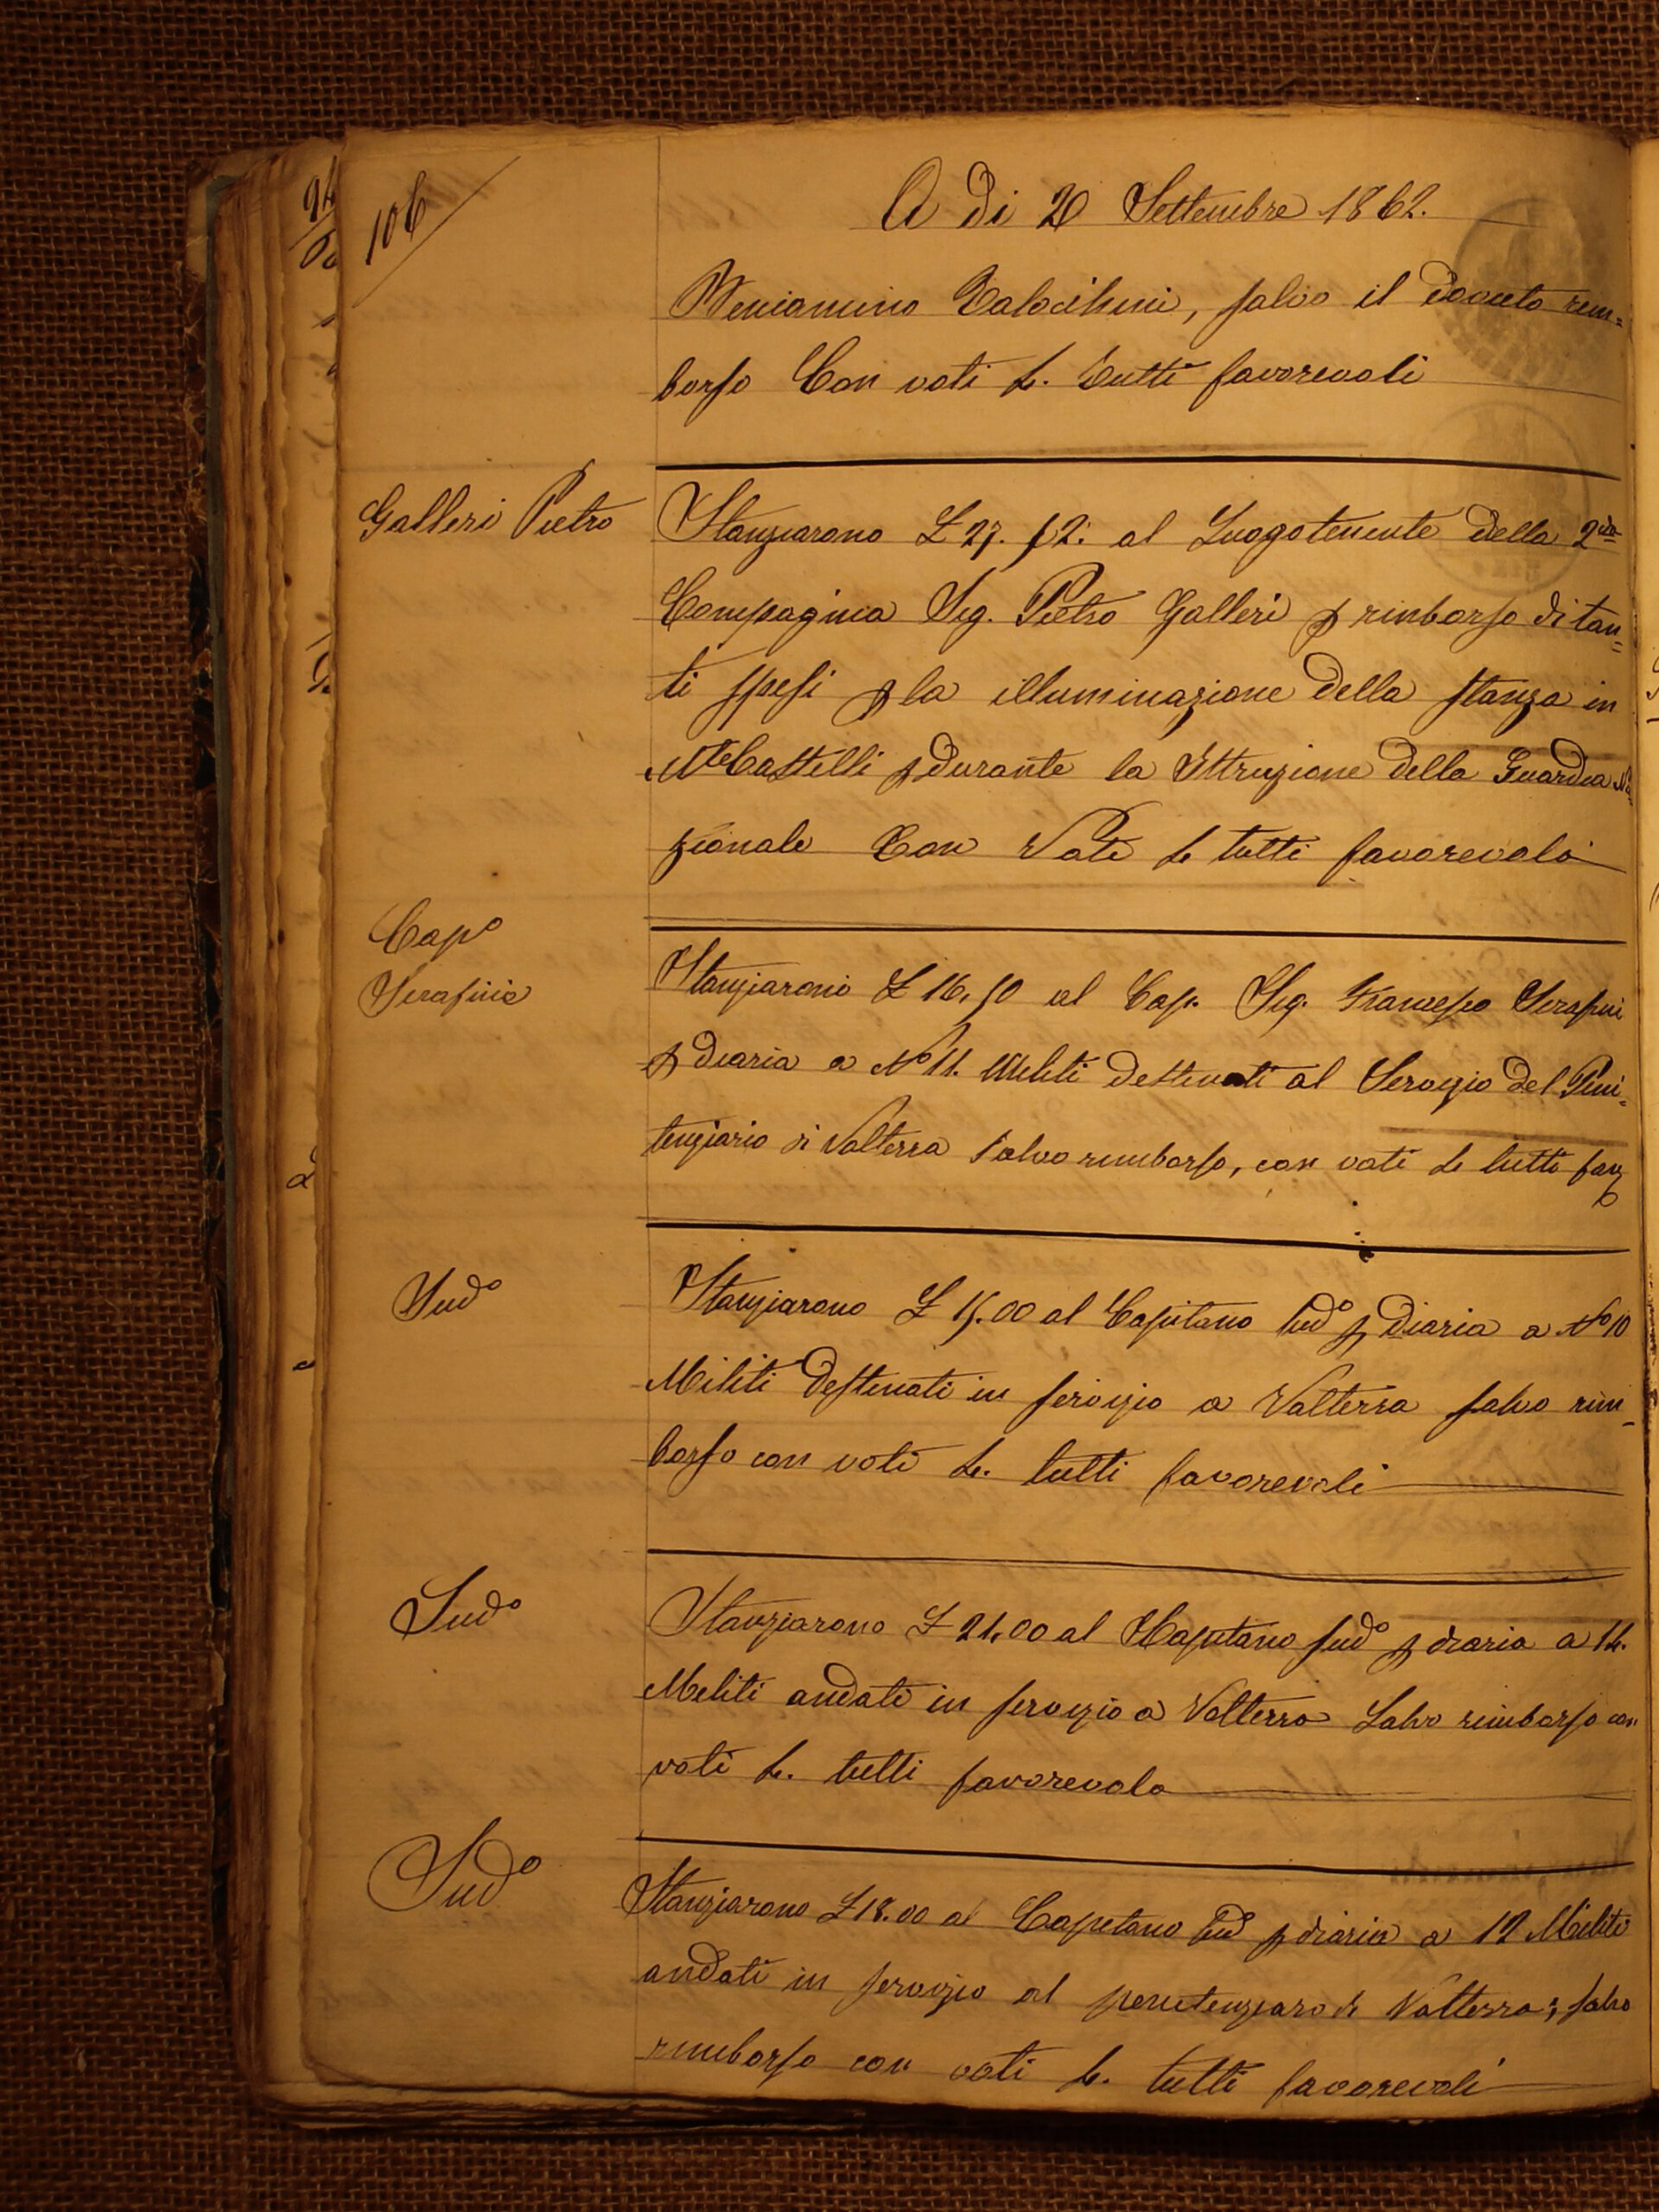 106
A dì 20 Settembre 1862.
Beniamino salvo il dovuto rim=
borso Con voti 4. Tutti favorevoli
Galleri Pietro
Stanziarono £ 27. 52. al Luogotenente della 2da
Compagnia Sig. Pietro Galleri p rimborso di tan=
ti spesi p la illuminazione della stanza in
MteCastelli p durante la Istruzione della Guardia Na=
zionale Con Voti 4 tutti favorevoli
Capo
Serafini
Stanziarono £ 16,50 al Cap. Sig. Francesco Serafini
p diaria a No 11. Militi destinati al Servizio del Peni=
tenziario di Volterra salvo rimborso, con voti 4 tutti fav
Sudo
Stanziarono £ 15.00 al Capitano sudo p Diaria a No 10
Militi destinati in servizio a Volterra salvo rim=
borso con voti 4. tutti favorevoli
Sudo
Stanziarono £ 21,00 al Capitano sudo p diaria a 14.
Militi andati in servizio a Volterra Salvo rimborso con
voti 4. tutti favorevoli
Sudo
Stanziarono £ 18.00 al Capitano sudo p diaria a 12 Militi
andati in servizio al penitenziaro di Volterra, salvo
rimborso con voti 4. tutti favorevoli